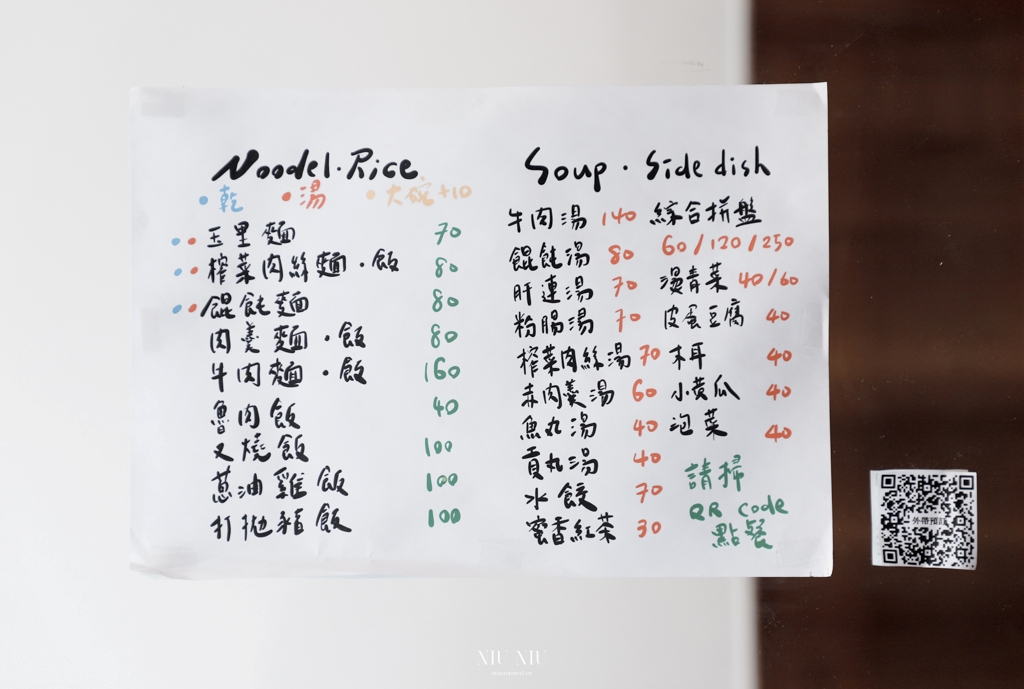 Noodel·Rice
•乾 •湯 •大碗+10
玉里麵 70
榨菜肉絲麵·飯 80
餛飩麵 80
肉羹麵·飯 80
牛肉麵·飯 160
魯肉飯 40
叉燒飯 100
蔥油雞飯 100
打拋豬飯 100
Soup·Side dish
牛肉湯 140
餛飩湯 80
肝連湯 70
粉腸湯 70
榨菜肉絲湯 70
赤肉羹湯 60
魚丸湯 40
貢丸湯 40
水餃 70
蜜香紅茶 30
綜合拼盤
60/120/250
燙青菜 40/60
皮蛋豆腐 40
木耳 40
小黃瓜 40
泡菜 40
請掃
QR code
點餐
外帶預訂
XIU XIU